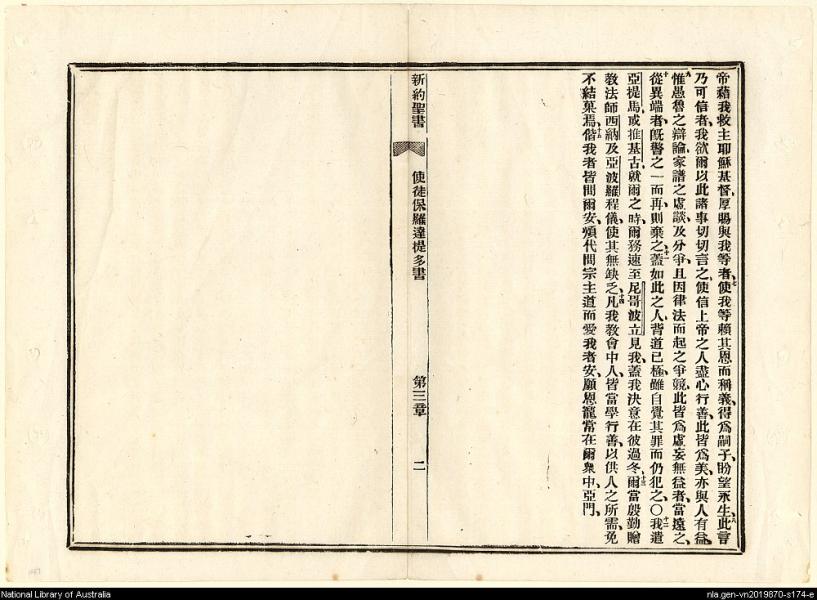 帝藉我救主耶穌基督、厚賜與我等者、七使我等賴其恩而稱義、得爲嗣子、盼望永生、八此言
乃可信者、我欲爾以此諸事切切言之、使信上帝之人盡心行善、此皆爲美、亦與人有益、
九惟愚魯之辯論、家譜之虛談、及分爭、且因律法而起之爭競、此皆爲虛妄無益者、當遠之、
十從異端者、旣警之一而再、則棄之、十一蓋如此之人、背道已極、雖自覺其罪而仍犯之、〇十二我遣
亞提馬、或推基古、就爾之時、爾務速至尼哥波立見我、蓋我決意在彼過冬、十三爾當殷勤贈
敎法師西納及亞波羅程儀、使其無缺乏、十四凡我敎會中人、皆當學行善、以供人之所需、免
不結菓焉、十五偕我者皆問爾安、煩代問宗主道而愛我者安、願恩寵當在爾衆中、亞門、
新約聖書
使徒保羅達提多書
第三章
二
National Library of Australia
nla.gen-vn2019870-s174-e